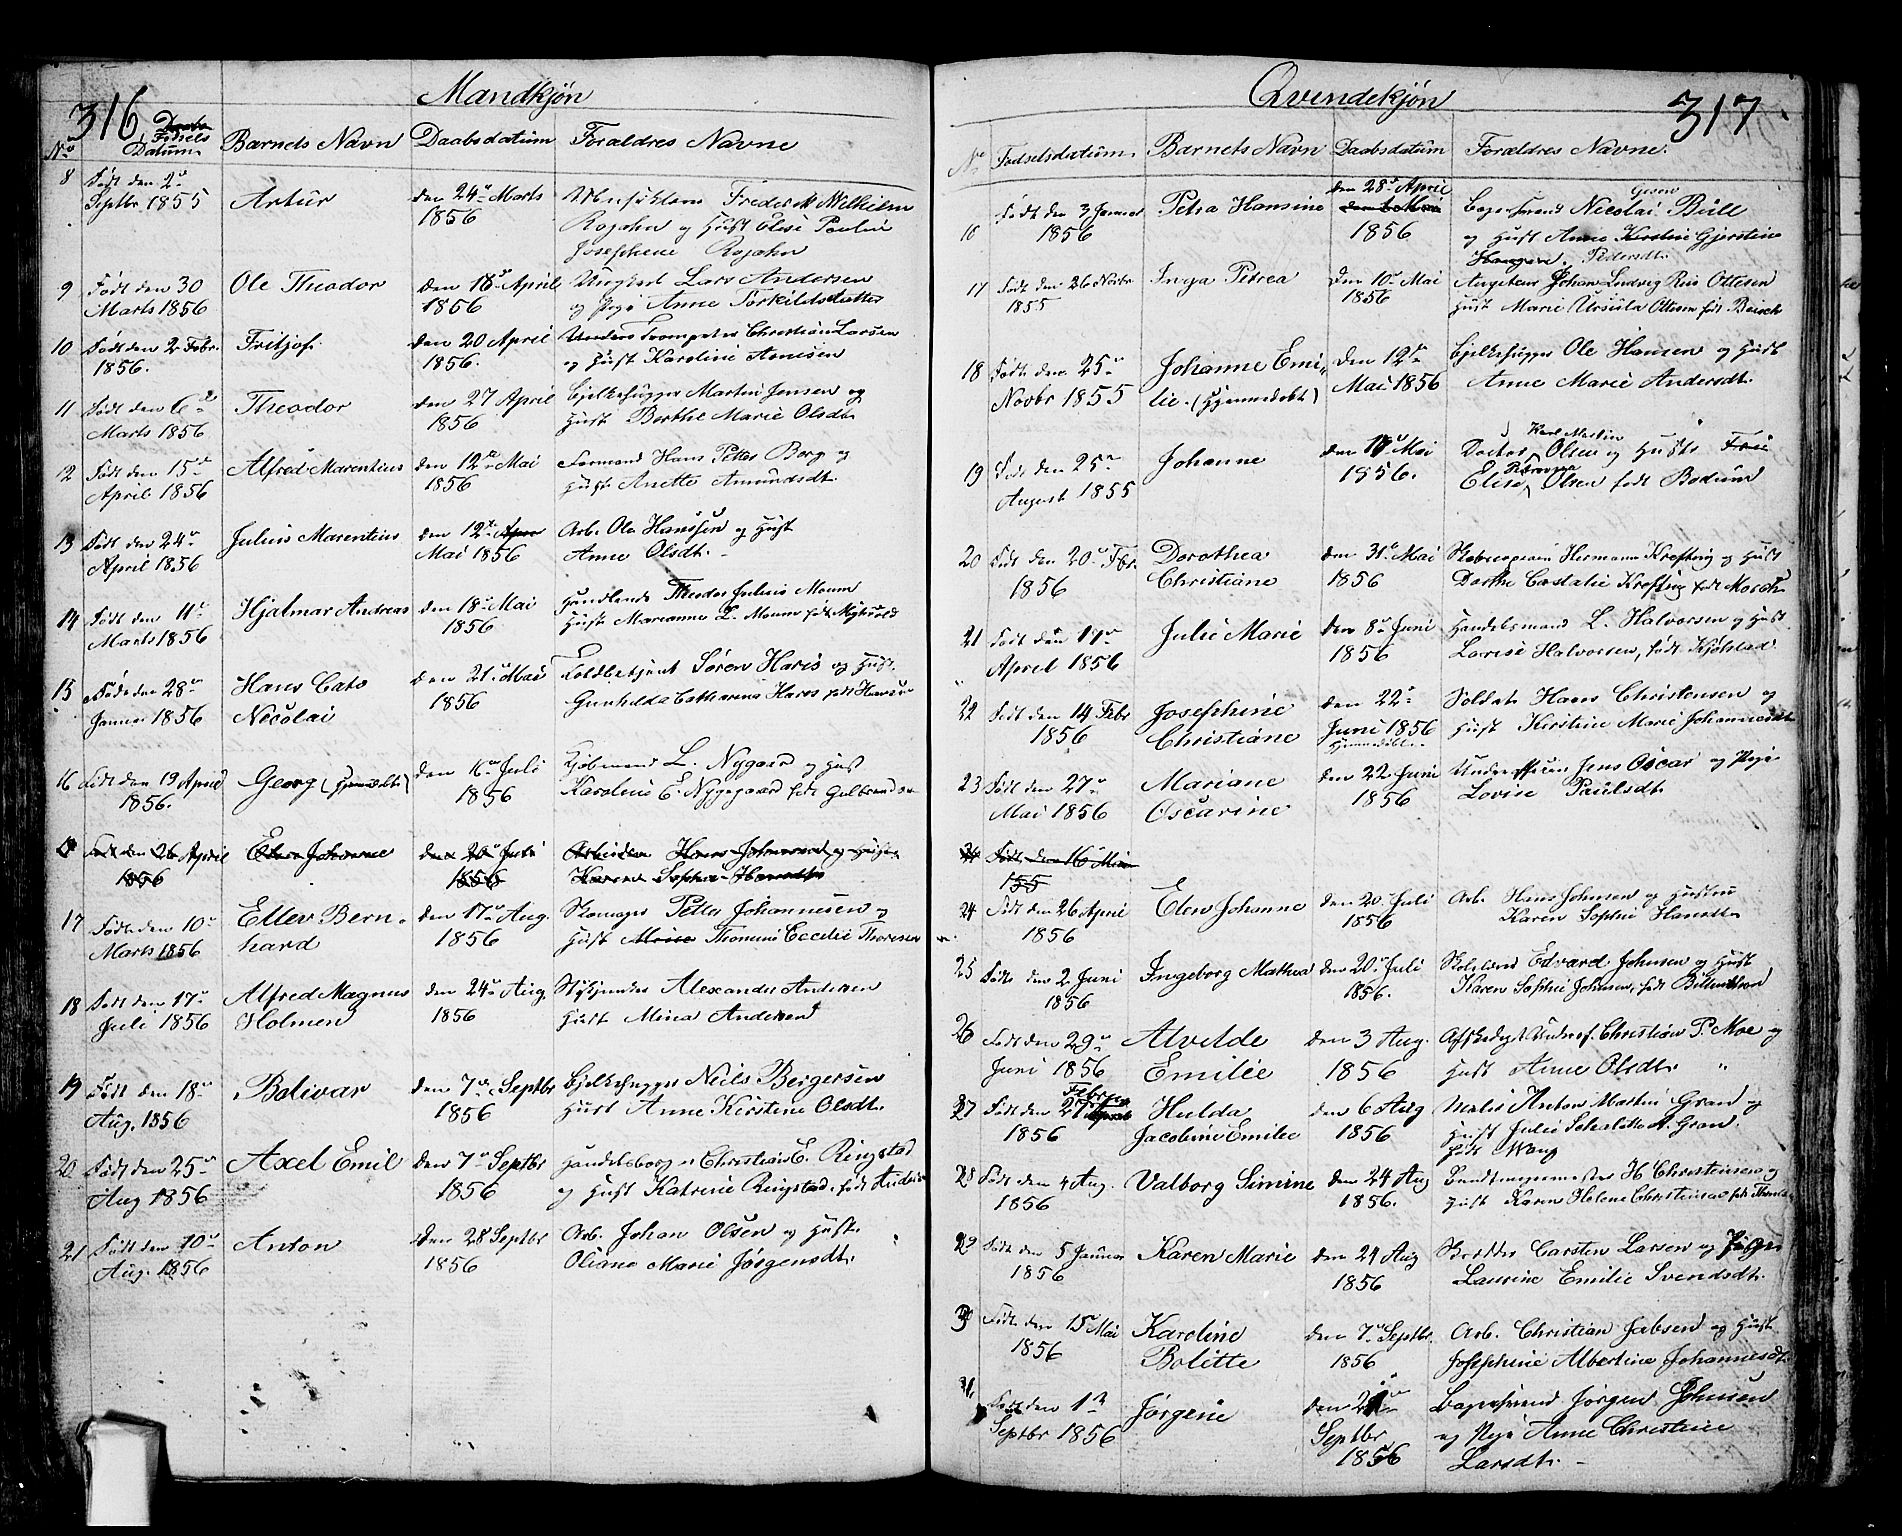 316
Mandkjøn
No
Fødsels
Datum
Barnets Navn
Daabsdatum
Forældres Navne
8
Født den 2
Septbr. 1855
Artur
den 24 Marts
1856
Frederik Wilhelm
Rojahn og Hust Elise Pauline
Josephine Rojahn
9
Født den 30
Marts 1856
Ole Theodor
den 18 April
1856
Ungkarl Lars Andersen
og Pige Anne Torkildsdatter
10
Født den 2 Febr.
1856.
Fritjof
den 20 April
1856.
Trompeter Christian Larsen
og Hust Karoline Arnesen
11
Født den 6
Marts 1856
Theodor
den 27 April
1856
Bjelkehugger Martin Jensen og
Hust Berthe Marie Olsdt
12
Født den 15
April 1856
Alfred Marentius
den 12 Mai
1856
Formand Hans Petter Berg og
Hust Anette Amundsdt.
13
Født den 24
April 1856
Julius Marentius
den 12te
Mai 1856
Arb. Ole Hanssen og Hust
Anne Olsdt.
14
Født den 11
Marts 1856
Hjalmar Andreas
den 18 Mai
1856
Handlende Theodor Julius Moum
Hust Marianne L. Moum født Myhvold
15
Født den 28
Januar 1856
Hans Cato
Necolai
den 21 Mai
1856
Toldbetjent Søren Haris og Hust
Gunhilda Catharina Hares født Hansen
16
Født den 19 April
1856.
Georg (Hjemdøbt)
den 16 Juli
1856
Kjøbmand L. Nygaard og Hust
Karoline E. Nygegaard født Gulbrandsen
Født den 26 April
1856
Elen Johanne
den 20 Juli
1856
Arbeider Hans Johnsen og Hust
Karen Sophie Hansdt
17
Født den 10
Marts 1856
Ellev Bern-
hard
den 17 Aug.
1856
Skomager Petter Johannesen og
Hust Thomine Cecilie Thoresen
18
Født den 17
Juli 1856
Alfred Magnus
Holmen
den 24 Aug.
1856
Alexander Andersen
Hust Mina Andersen
19
Født den 18
Aug. 1856
Bolivar
den 7 Septbr
1856
Bjelkehugger Neils Bergersen
Hust Anne Kirstine Olsdt.
20
Født den 25
Aug 1856
Axel Emil
den 7 Septbr
1856
Handelsborger Christian E. Ringstad
og Hust Katrine Ringstad, født
21
Født den 10
Aug. 1856
Anton
den 28 Septbr
1856
Arb. Johan Olsen og Hust
Oliane Marie Jørgensdt.
317
Qvindekjøn
No
Fødselsdatum
Barnets Navn
Daabsdatum
Forældres Navne.
16
Født den 3 Januar
1856
Petra Hansine
den 28 April
1856
Nicolai Büll
og Hust Anne Gjerstine
Pedersdt.
17
Født den 26 Novbr
1855
Inga Petrea
den 10 Mai
1856
Johan Ludvig Riis Ottesen
Hust Marie Ursula Ottesen født
18
Født den 25
Novbr 1855
Johanne Emi-
lie. (Hjemmedøbt)
den 12te
Mai 1856
Bjelkehugger Ole Hansen og Hust
Anne Marie Andersdt.
19
Født den 25
August 1855
Johanne
den Mai
1856.
Karl Martin
Doctor Olsen og Hust
Petronne
Elise Olsen født Bodum
20
Født den 20 Febr.
1856
Dorothea
Christiane
den 31 Mai
1856
Hermann Krefting og Hust
Dorthe Castalie Krefting født
21
Født den 17
April 1856
Julie Marie
den 8 Juni
1856
Handelsmand L. Halvorsen og Hust
Lovise Halvorsen, født Kjølstad
22
Født den 14 Febr
1856
Josephine
Christiane
den 22
Juni 1856
Hjemmedøbt
Soldat Hans Christensen og
Hust Kirstine Marie Johannesdt
23
Født den 27
Mai 1856
Mariane
Oscarine
den 22 Juni
1856
Jens Oscar og Pige
Lovise Paulsdt.
24
Født den 16
155
24
Født den 26 April
1856
Elen Johanne
den 20 Juli
1856
Arb. Hans Johnsen og Hustru
Karen Sophie Hansdt
25
Født den 2 Juni
1856
Ingeborg Mathea
den 20 Juli
1856.
Edvard Johnsen og Hust
Karen Sophie Johnsen, født
26
Født den 29
Juni 1856
Alvilde
Emilie
den 3 Aug.
1856
Afskediget Underof. Christian P. Moe og
Hust Anne Olsdt.
27
Februar
Født den 27
1856
Hulda
Jacobine Emilie
den 6 Aug
1856
Maler Anton Martin Gran og
Hust Julie Scharlotte A. Gran.
født Wang
28
Født den 4 Aug.
1856
Valborg Simine
den 24 Aug
1856.
H Christensen og
Hust Karen Helene Christensen født
29
Født den 5 Januar
1856
Karen Marie
den 24 Aug
1856
Skredder Carsten Larsen og Pige
Laurine Emilie Svendsdt.
Født den 15 Mai
1856
Karoline
Bolitte
den 7 Septbr.
1856
Arb. Christian Jabsen og Hust
Josephine Albertine Johannesdt
31
Født den 13
Septbr 1856
Jørgene
den 21
Septbr
1856
Jørgen Johnsen
og Pige Anne Christine
Larsdt.